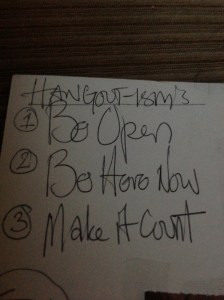 HANGOUT-ISM'S
① Be Open
② Be Here Now
③ Make It Count